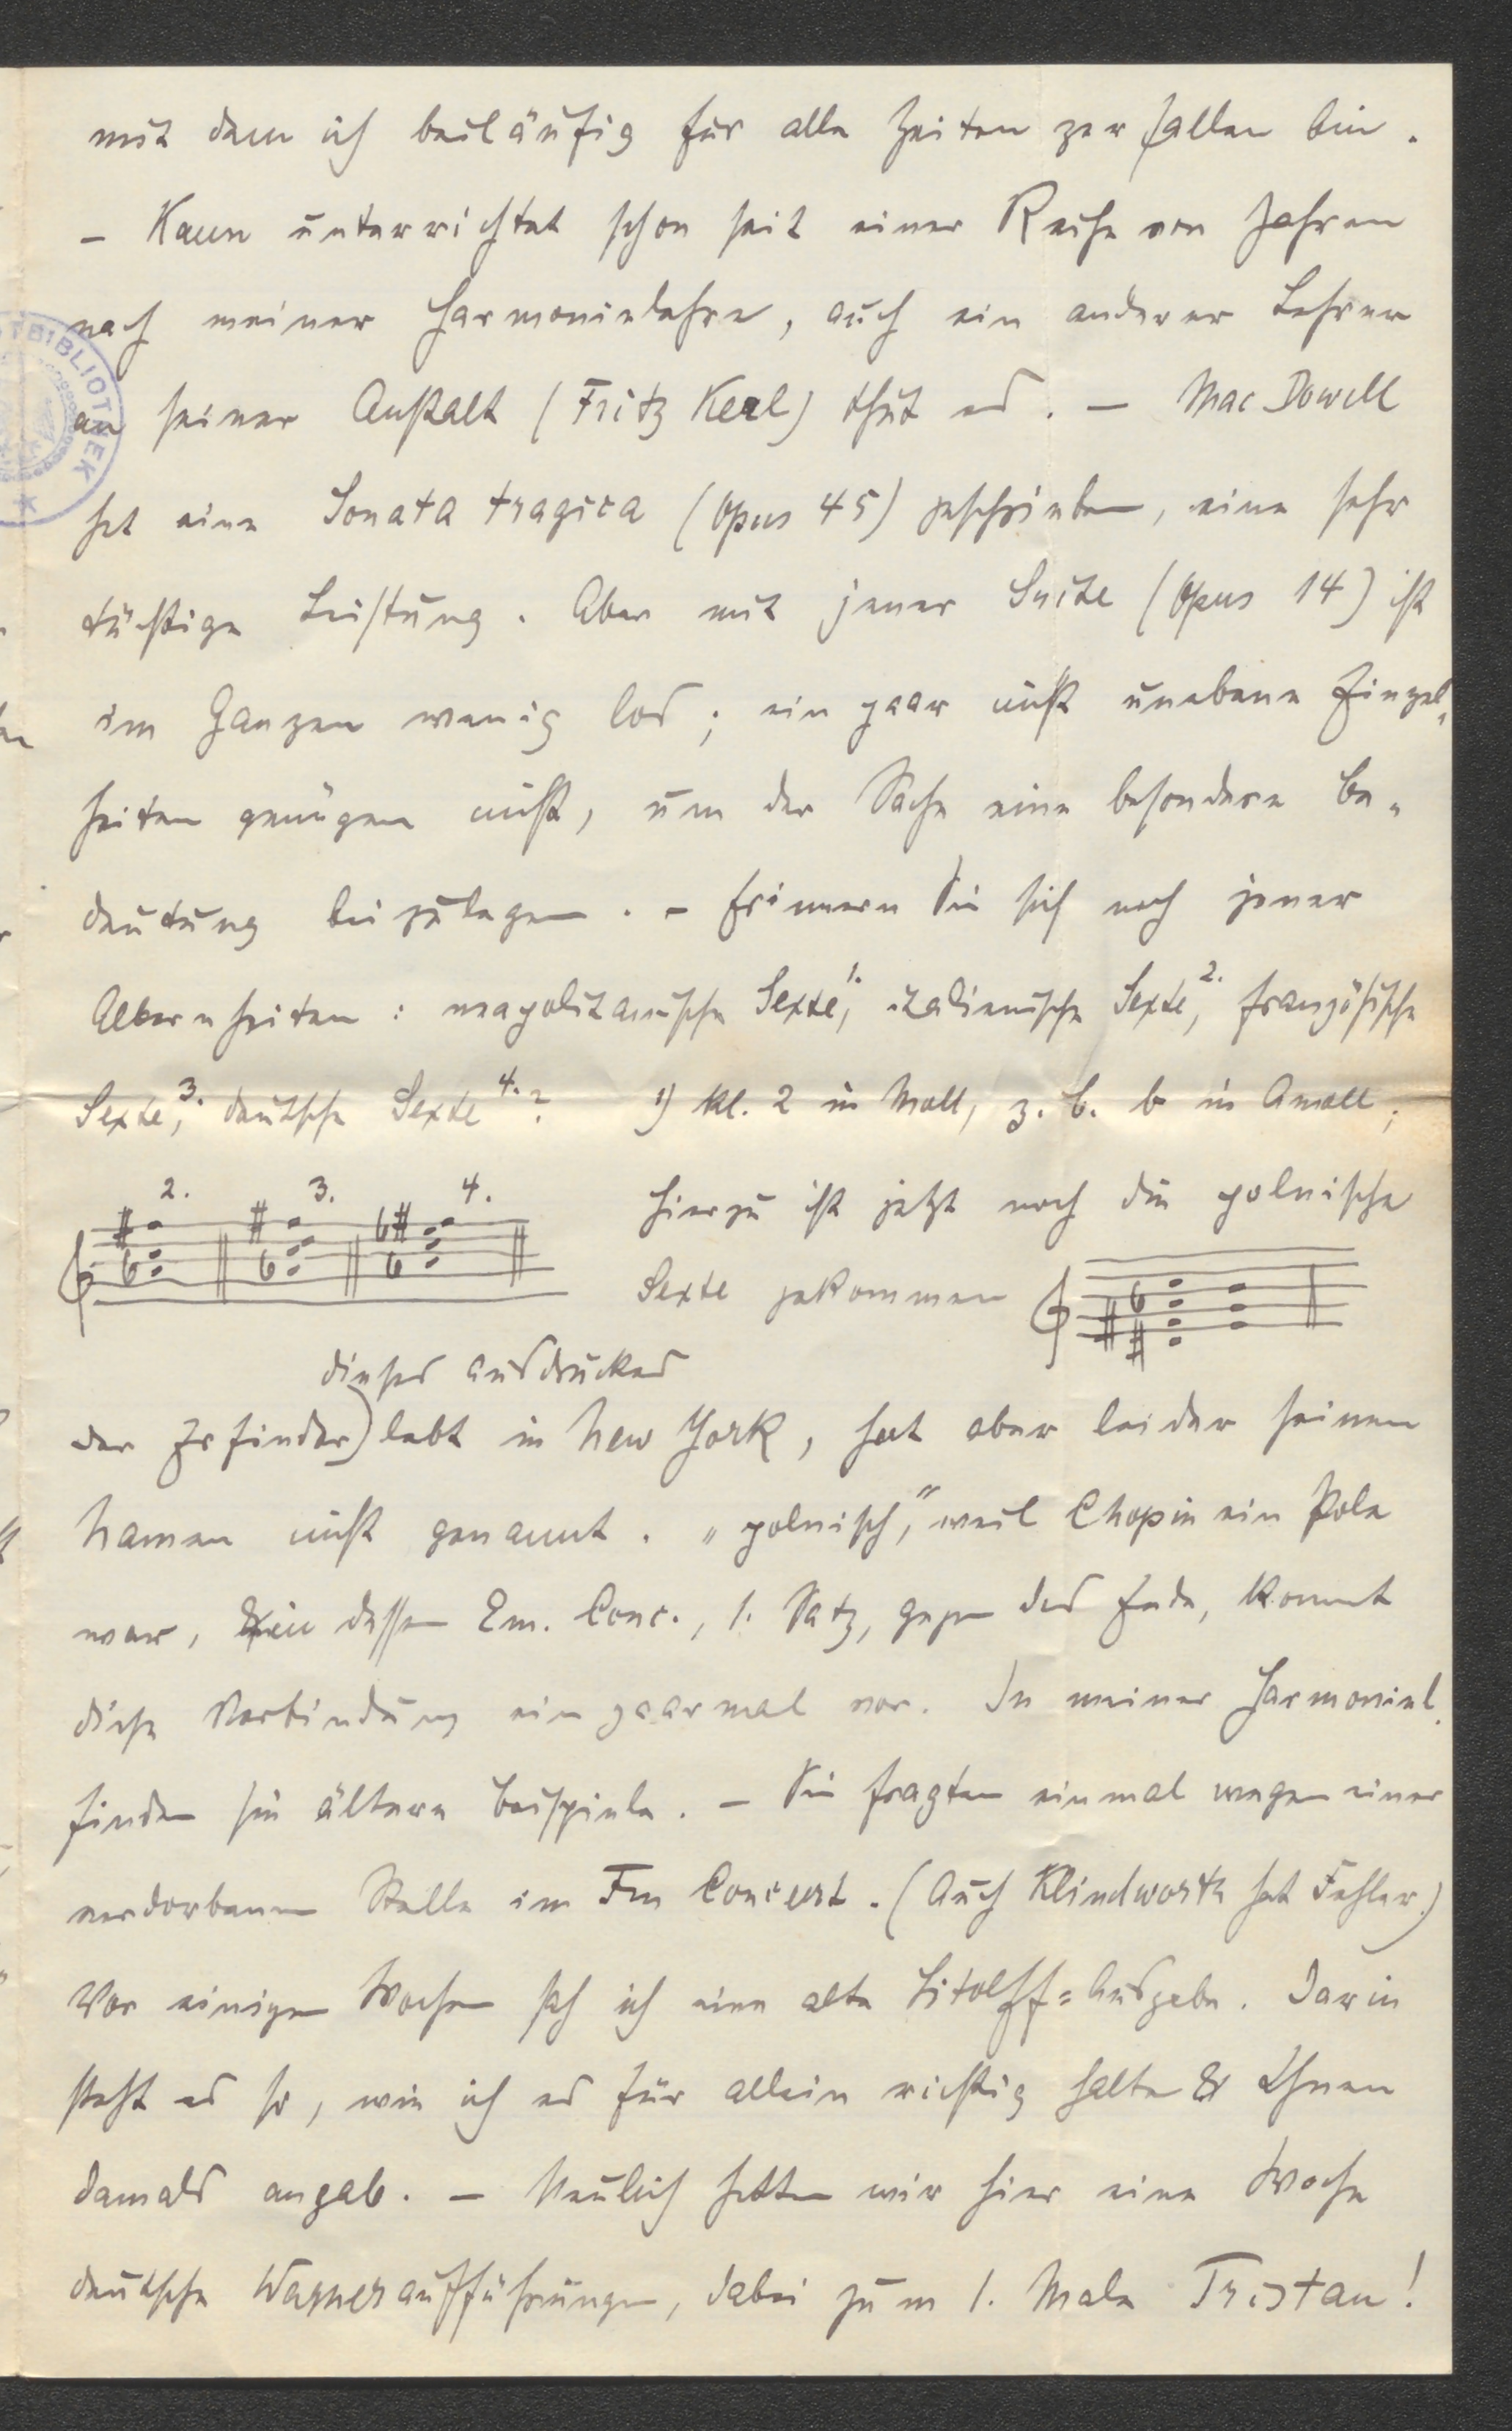 mit dem ich beiläufig für alle Zeiten zerfallen bin.
– Kaun unterrichtet schon seit einer Reihe von Jahren
nach meiner Harmonielehre, auch ein anderer Lehrer
an seiner Anstalt (Fritz Kerl) thut es. – Mac Dowell
hat eine Sonata tragica (Opus 45) geschrieben, eine sehr
tüchtige Leistung. Aber mit jener Suite (Opus 14) ist
im Ganzen wenig los; ein paar nicht unebene Einzel-
heiten genügen nicht, um der Sache eine besondere Be-
deutung beizulegen. – Erinnern Sie sich noch jener
Albernheiten: neapolitanische Sexte,1. italienische Sexte,2. französische
Sexte,3. deutsche Sexte4.? 1) kl. 2 in Moll, z. B. b in Amoll;
2. 3. 4.
Hierzu ist jetzt noch die polnische
Sexte gekommen
dieses Ausdruckes
der Erfinder) lebt in New York, hat aber leider seinen
Namen nicht genannt. „polnisch," weil Chopin ein Pole
war, & in dessen Em. Conc., 1. Satz, gegen das Ende, kommt
diese Verbindung ein paarmal vor. In meiner Harmoniel.
finden sie ältere Beispiele. – Sie fragten einmal wegen einer
verdorbenen Stelle im Fm Concert. (Auch Klindworth hat Fehler.)
Vor einigen Wochen sah ich eine alte Litolff=Ausgabe. Darin
steht es so, wie ich es für allein richtig halte & Ihnen
damals angab. – Neulich hatten wir hier eine Woche
deutsche Wagneraufführungen, dabei zum 1. Male Tristan!
TBIBLIOTEK